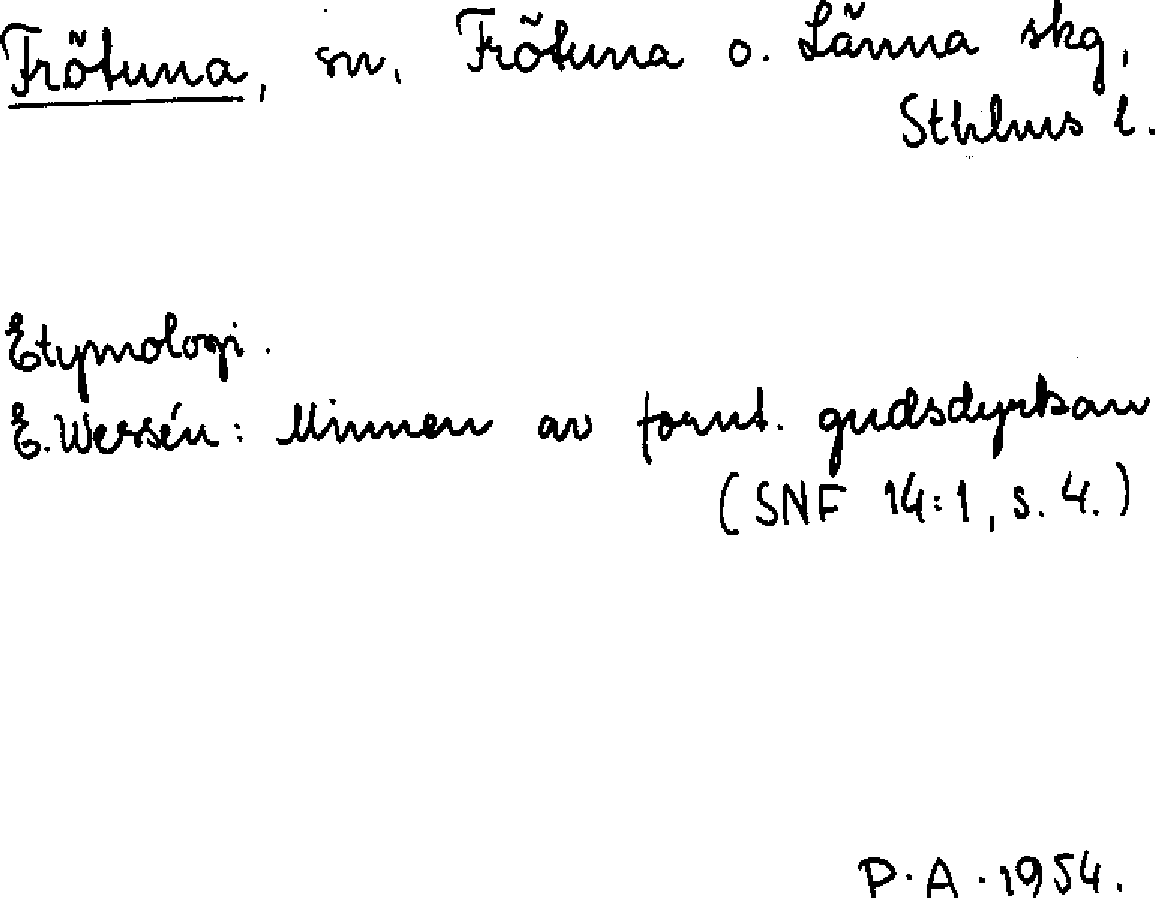 Frötuna, sn, Frötuna o. Länna skg,
Sthlms l.
Etymologi.
E. Wessén: Minnen av fornt. gudsdyrkan
(SNF 14:1, s. 4.)
P.A. 1954.